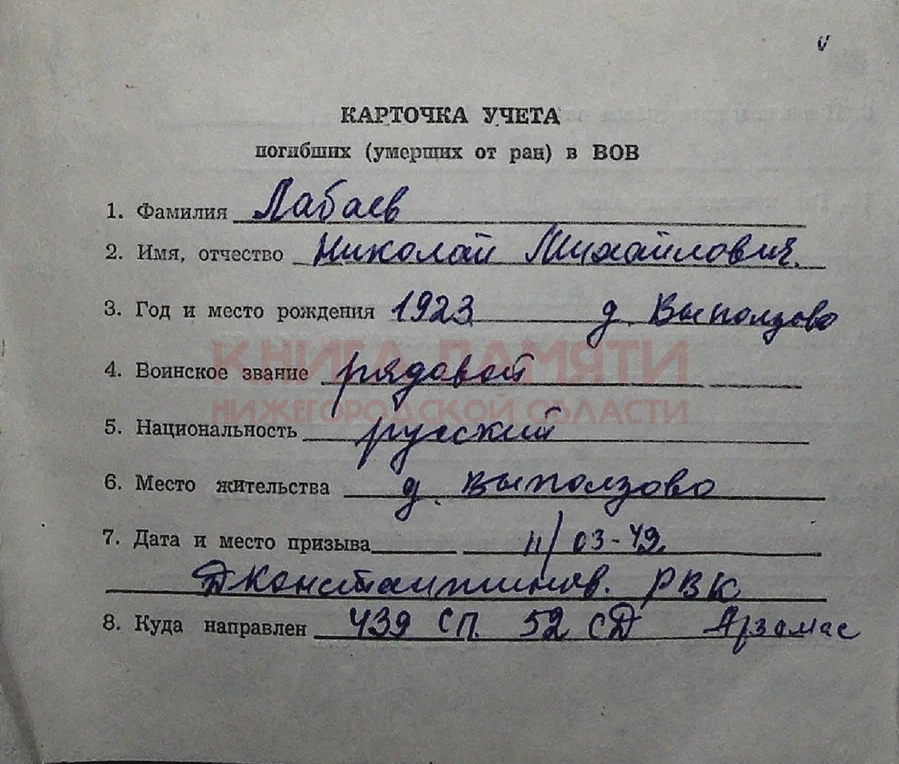 КАРТОЧКА УЧЕТА
погибших (умерших от ран) в ВОВ
1. Фамилия Лабаев
2. Имя, отчество Николай Михайлович.
3. Год и место рождения 1923 д. Выползово
КНИГА ПАМЯТИ
4. Воинское звание рядовой
НИЖЕГОРОДСКОЙ ОБЛАСТИ
5. Национальность русский
6. Место жительства д. Выползово
7. Дата и место призыва 11/03-42
Дконстантинов. РВК
8. Куда направлен 439 СП. 52 СД Арзамас